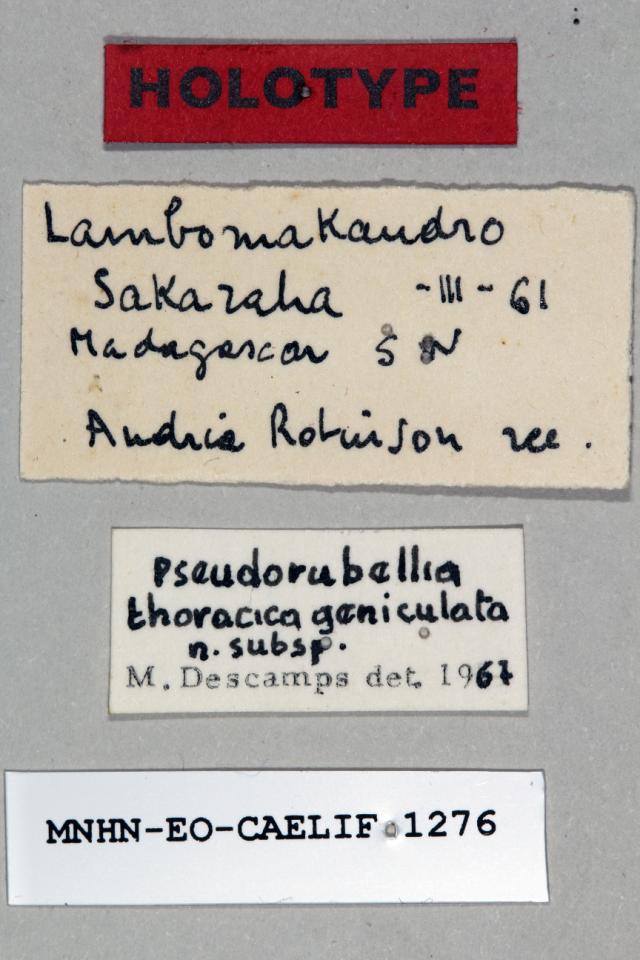 HOLOTYPE
Lambomakandro
Sakaraha -III-61
Madagascar S W
Andria Robinson rec.
Pseudorubellia
thoracica geniculata
n. subsp.
M. Descamps det. 1967
MNHN-EO-CAELIF 1276